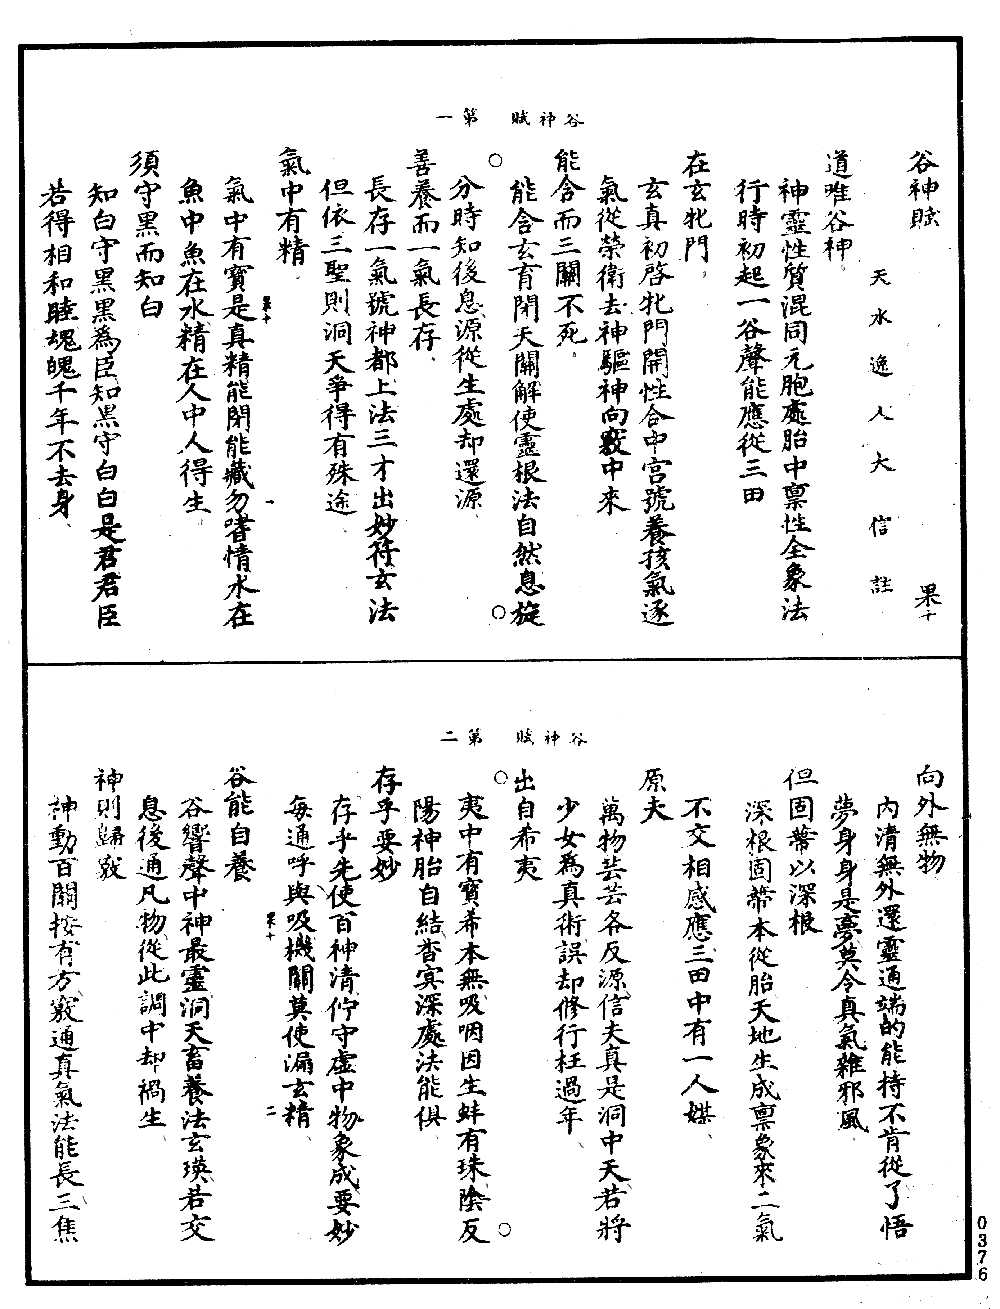 谷神賦　第一
谷神賦　果十
天水逸人大信註
道唯谷神
神靈性質混同元胞處胎中禀性全象法
行時初起一谷聲能應從三田
在玄牝門
玄真初啓牝門開性合中宮號養孩氣逐
氣從榮衛去神驅神向竅中來
能含而三關不死
能含玄育閉天關解使靈根法自然息旋
分時知後息源從生處却還源
善養而一氣長存
長存一氣號神都上法三才出妙符玄法
但依三聖則洞天爭得有殊途
氣中有精
氣中有寳是真精能閉能藏勿嗜情水在
魚中魚在水精在人中人得生
須守黑而知白
知白守黑黑爲臣知黑守白白是君君臣
若得相和睦魂魄千年不去身
果十　一
谷神賦　第二
向外無物
內清無外還靈通端的能持不肯從了悟
夢身身是夢莫令真氣雜邪風
但固蔕以深根
深根固蔕本從胎天地生成禀象來二氣
不交相感應三田中有一人媒
原夫
萬物芸芸各反源信夫真是洞中天若將
少女為真術誤却修行枉過年
出自希夷
夷中有寳希本無吸咽因生蚌有珠陰反
陽神胎自結杳冥深處法能俱
存乎要妙
存乎先使百神清佇守虛中物象成要妙
每通呼與吸機關莫使漏玄精
谷能自養
谷響聲中神最靈洞天畜養法玄瑛若交
息後通凡物從此調中却禍生
神則歸竅
神動百關按有方竅通真氣法能長三焦
果十　二
0376